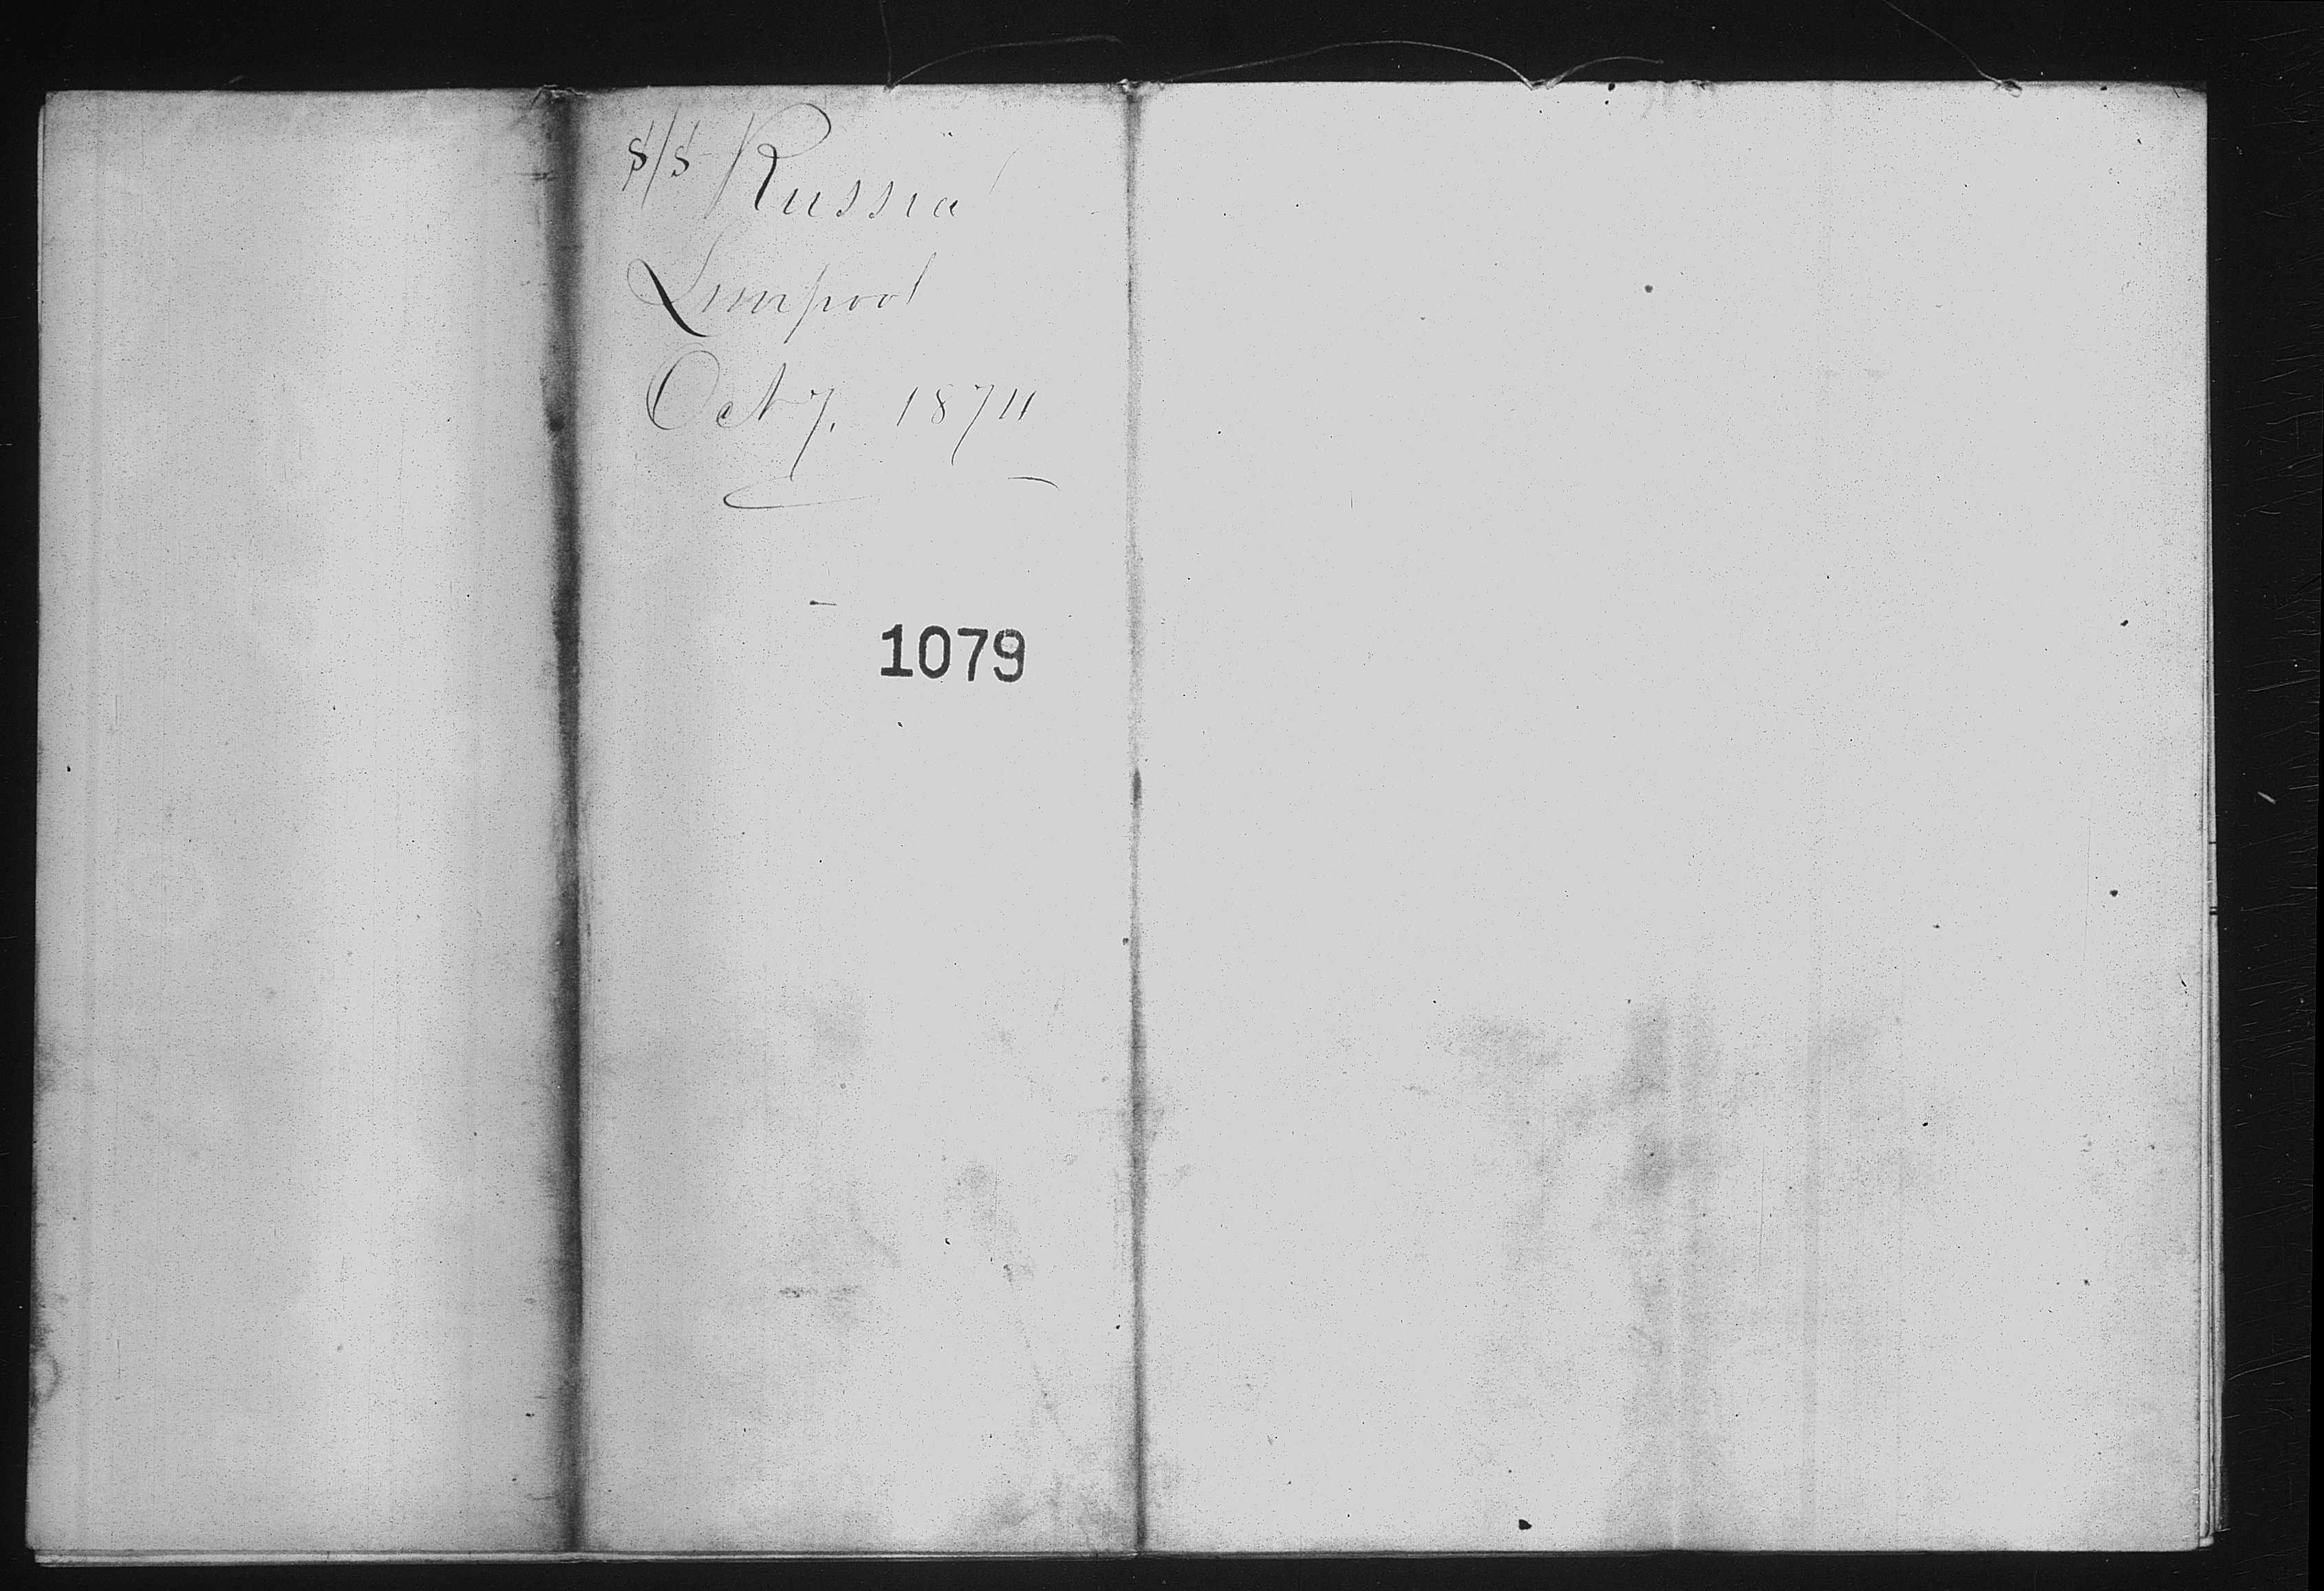 S/S Russia
Liverpool
Oct 7, 1874
1079